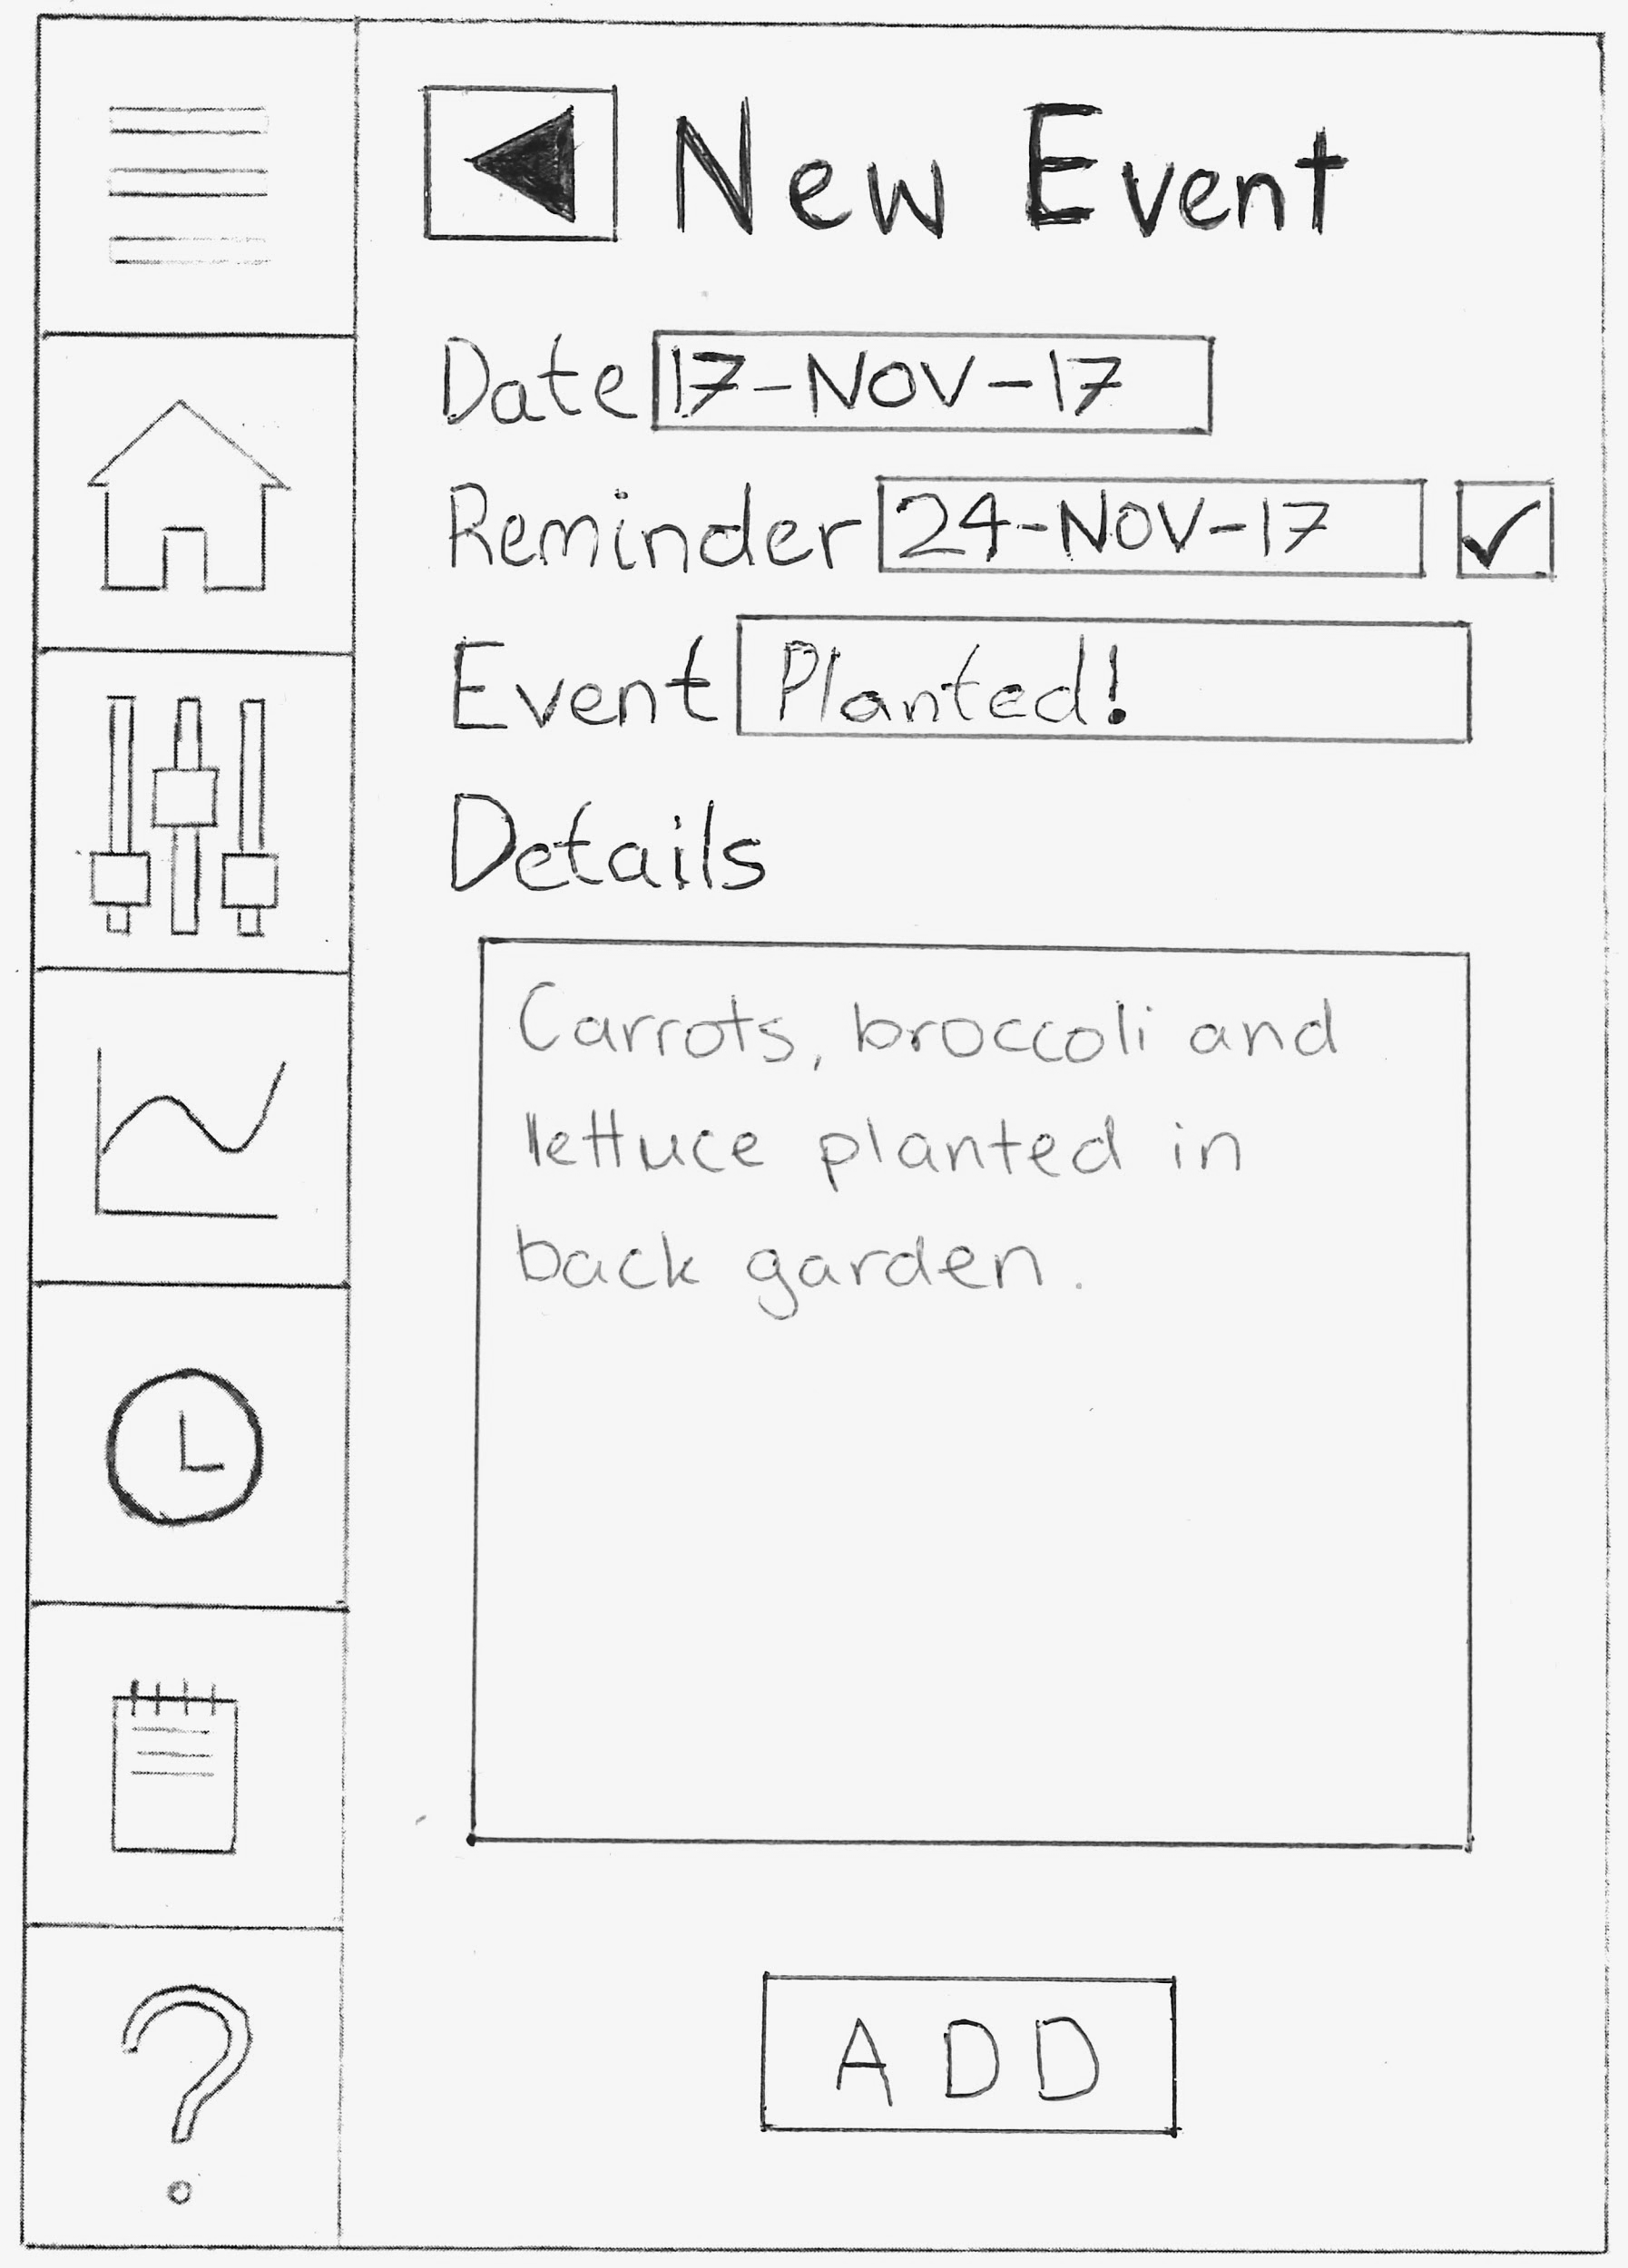 New Event
Date 17-NOV-17
Reminder 24-NOV-17
Event Planted!
Details
Carrots, broccoli and
lettuce planted in
back garden.
ADD